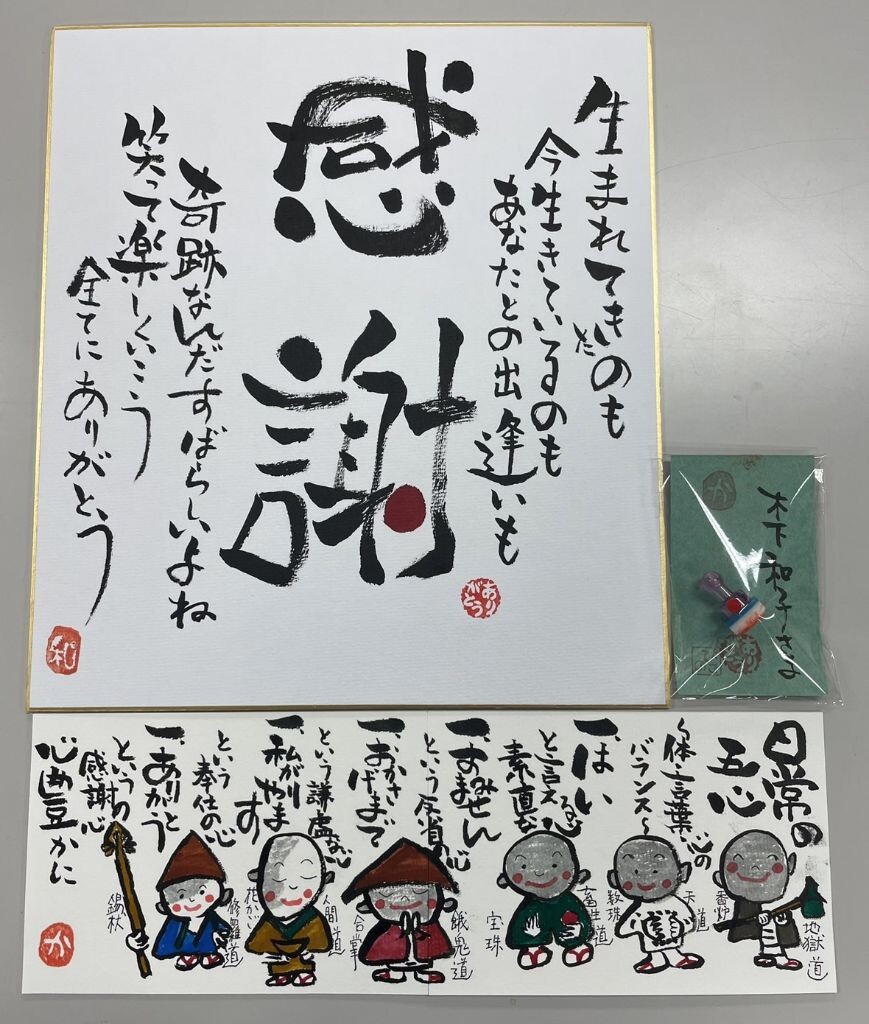 生まれてきたのも
今生きているのも
あなたとの出逢いも
感謝
奇跡なんだすばらしいよね
笑って楽しくいこう
全てにありがとう
ありがとう
和
か
木下和子さま
ありがとう
日常の
五心
〜体・言葉・心の
バランス〜
一、はい
と言える心
素直な
一、すみません
という反省の心
一、おかげさまで
という謙虚な心
一、私がやります
という奉仕の心
一、ありがとう
というの
感謝心
心豊かに
か
地獄道
香炉
天道
数珠
畜生道
宝珠
餓鬼道
合掌
人間道
修羅道
錫杖